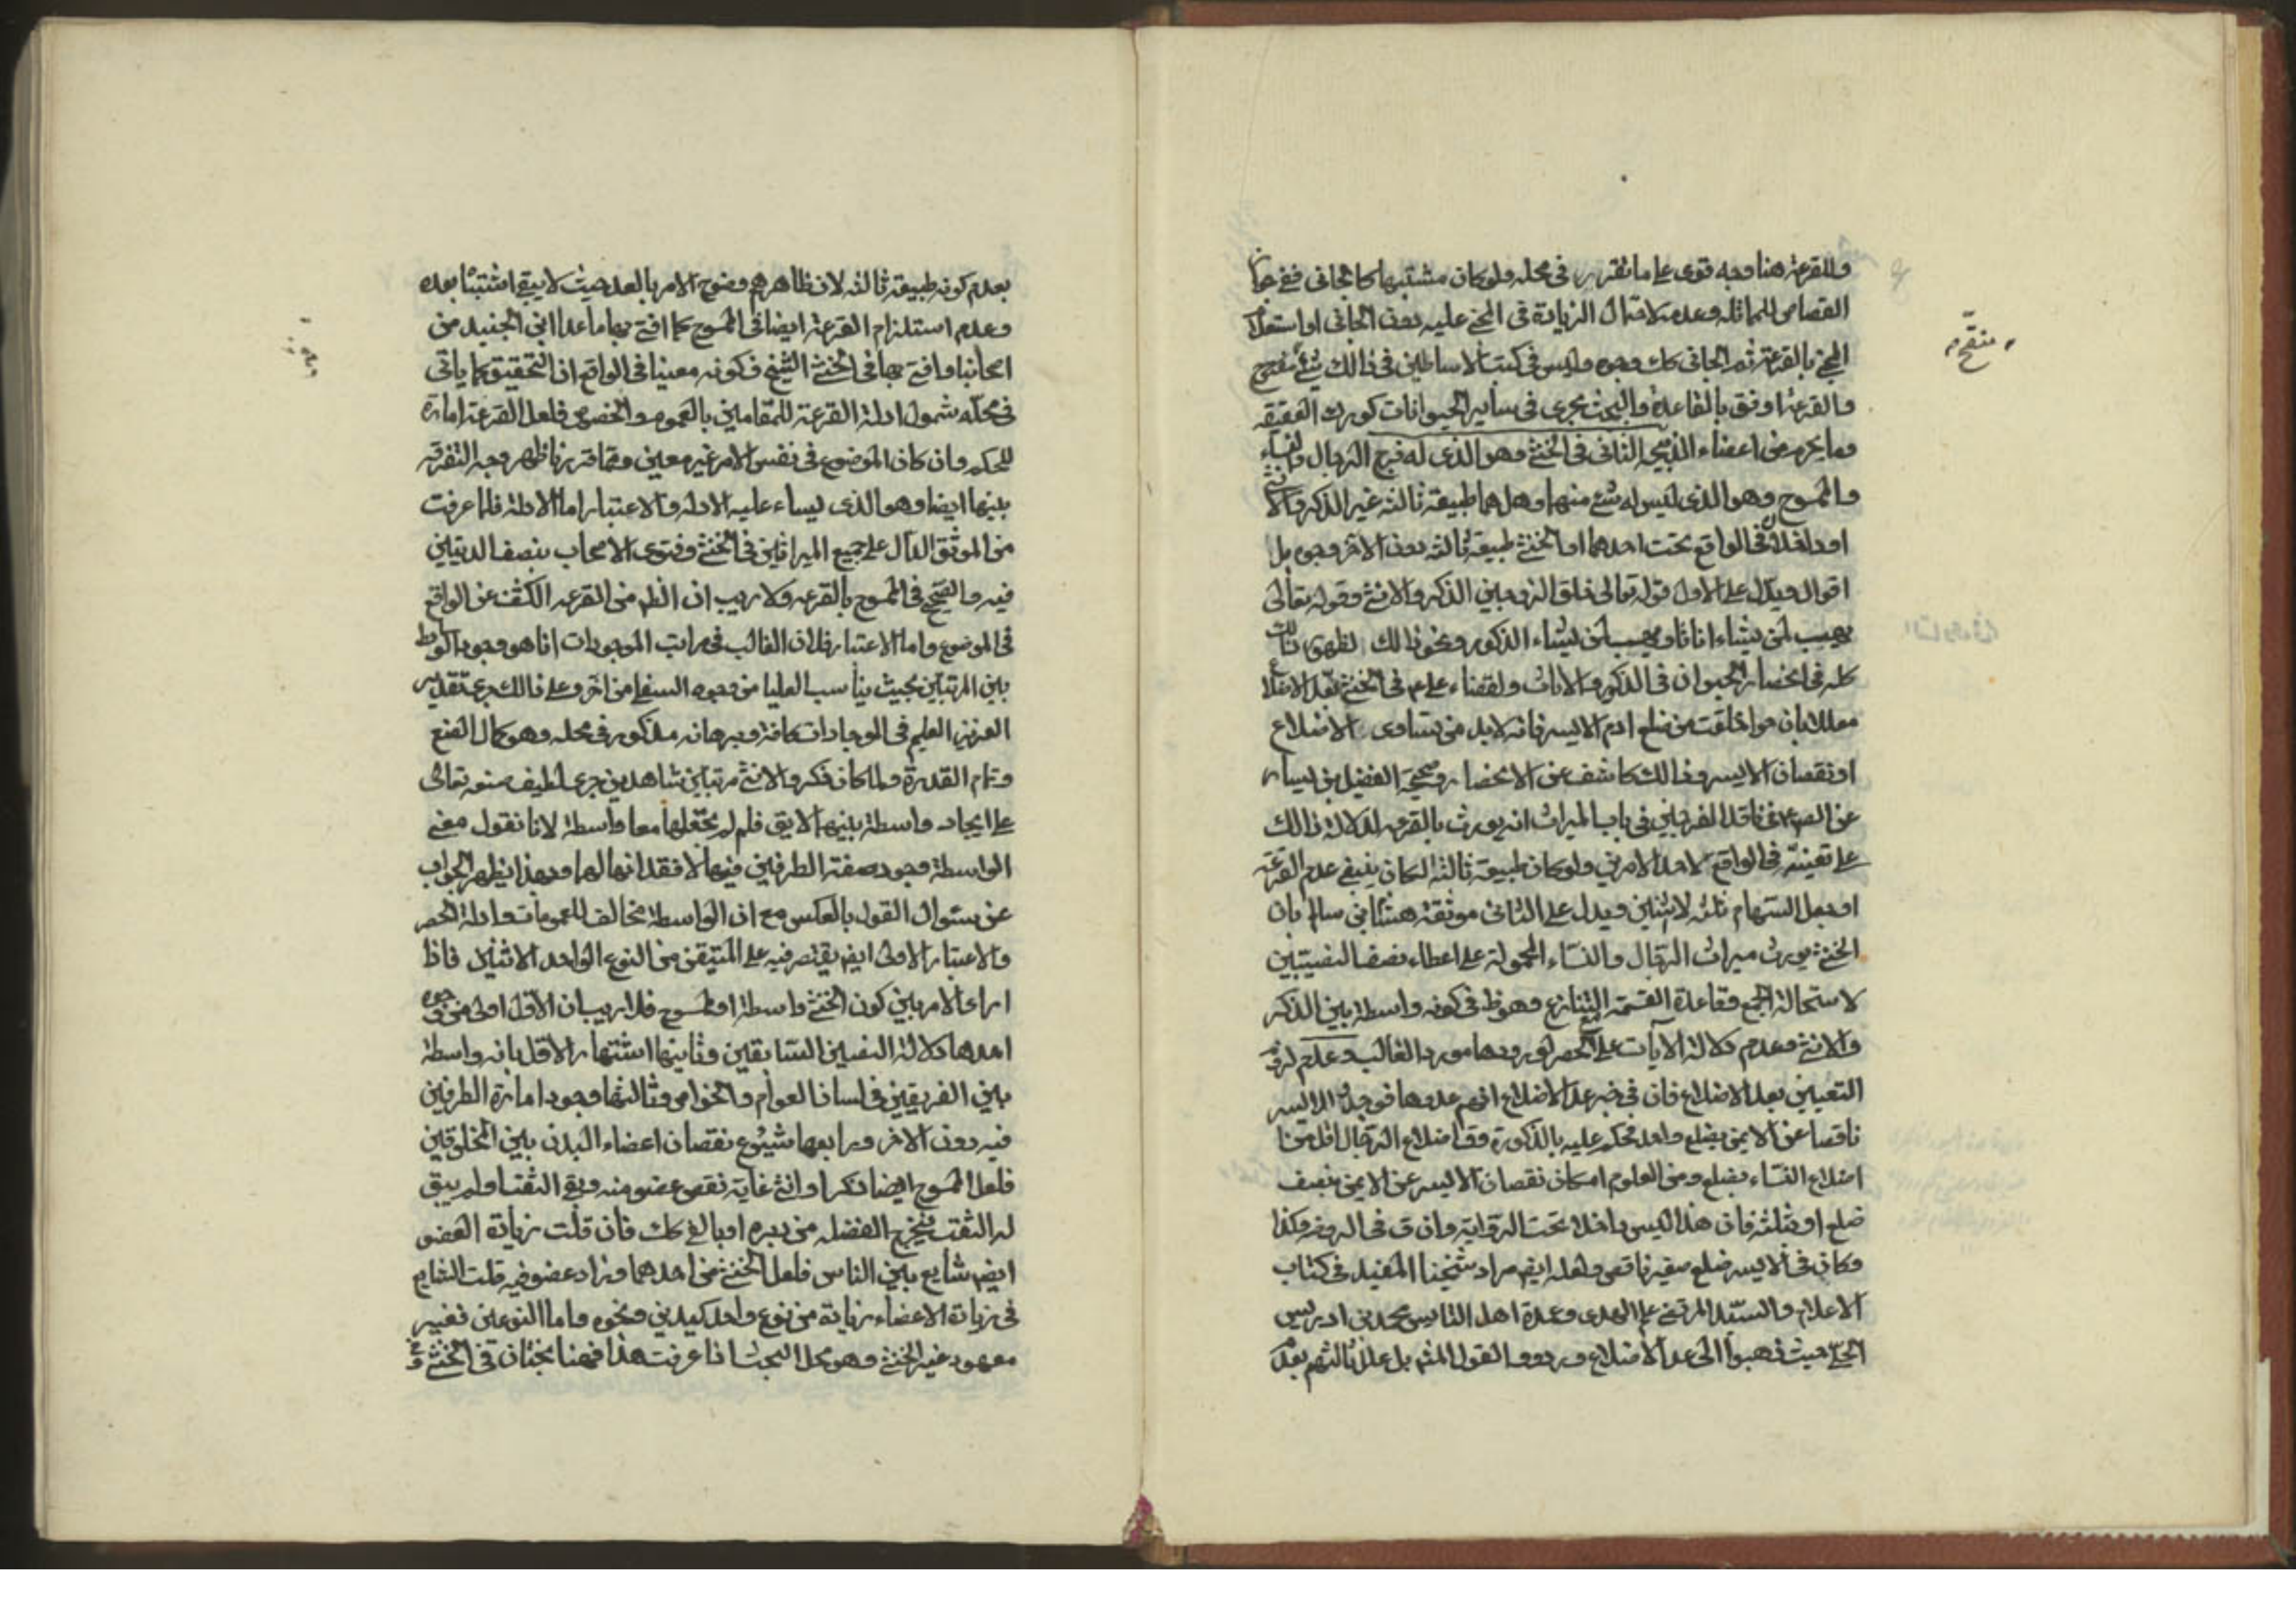 وللقرعة هنا وجه قوى على ما تقرر فى محله ولو كان مشتبها كالجانى ففى جواز
القصاص للمماثلة وعدمه لاحتمال الزيادة فى المجنى عليه دون الجانى او استعلام
المجنى بالقرعة ثم الجانى كك وجوه وليس فى كتب الاساطين فى ذالك شئ منقح
والقرعة اوفق بالقاعدة والبحث يجرى فى سائر الحيوانات كورك العقيقة
وما يحرم من اعضاء الذبيحة الثانى فى الخنثى وهو الذى له فرج الرجال والنساء
والممسوح وهو الذى ليس له شئ منهما وهل هما طبيعة ثالثة غير الذكر والانثى
او داخلان فى الواقع تحت احدهما او الخنثى طبيعة ثالثة دون الاخر وجوه بل
اقوال ويدل على الاول قوله تعالى خلق الزوجين الذكر والانثى وقوله تعالى
يهب لمن يشاء اناثا ويهب لمن يشاء الذكور ونحو ذالك لظهور ذالك
كله فى انحصار الحيوان فى الذكور والاناث ولقضاء على ع فى الخنثى بعد الاضلاع
معللا بان حوا خلقت من ضلع ادم الايسر فانه لابد من تساوى الاضلاع
او نقصان الايسر وذالك كاشف عن الانحصار وصحيحة الفضيل بن يسار
عن الصادق ع فى فاقد الفرجين فى باب الميراث انه يورث بالقرعة لدلالة ذالك
على تعينه فى الواقع لاحد الامرين ولو كان طبيعة ثالثة لكان ينبغى عدم القرعة
او جعل السهام ثلثة لا اثنين ويدل على الثانى موثقة هشام بن سالم بان
الخنثى يورث ميراث الرجال والنساء المحمولة على اعطاء نصف النصيبين
لاستحالة الجمع وقاعدة القسمة مع التنازع وهو ظ فى كونه واسطة بين الذكر
والانثى وعدم دلالة الآيات على الحصر لورودها مورد الغالب وعدم لزوم
التعيين بعد الاضلاع فان فى خبر عد الاضلاع انهم عدوها فوجد الايسر
ناقصا عن الايمن بضلع واحد فحكم عليه بالذكورة وقد اضلاع الرجال اقل من
اضلاع النساء بضلع ومن المعلوم امكان نقصان الايسر عن الايمن بنصف
ضلع او ثلثه فان هذا ليس داخلا تحت الرواية وان ق فى الروض وكذا
وكان فى الايسر ضلع صغير ناقص ولعله ايض مراد شيخنا المفيد فى كتاب
الاعلام والسيد المرتضى علم الهدى وعمدة اهل التاسيس محمد بن ادريس
الحلى حيث ذهبوا الى عد الاضلاع وردوا القول المش بل علل ثالثهم بعد
منقح
بعدم كونه طبيعة ثالثة لان ظاهرهم وضوح الامر بالعد حيث لا يبقى اشتباه بعده
وعدم استلزام القرعة ايضا فى الممسوح كما افتى بها ما عدا ابن الجنيد من
اصحابنا وافتى بها فى الخنثى الشيخ فكونه معينا فى الواقع اذ التحقيق كما ياتى
فى محله شمول ادلة القرعة للمقامين بالعموم والخصوص فلعل القرعة امارة
للحكم وان كان الموضوع فى نفس الامر غير معين ومما قررنا ظهر وجه التفرقة
بينهما ايضا وهو الذى يساعد عليه الادلة والاعتبار اما الادلة فلما عرفت
من الموثق الدال على جميع الميراثين فى الخنثى وفتوى الاصحاب بنصف الديتين
فيه والصحيح فى الممسوح بالقرعة ولا ريب ان الظ من القرعة الكشف عن الواقع
فى الموضوع واما الاعتبار فلان الغالب فى مراتب الموجودات انما هو وجود الوسط
بين المرتبتين بحيث يناسب العليا من وجه والسفلى من اخر وعلى ذالك جرى تقدير
العزيز العليم فى الموجودات كافة وبرهانه مذكور فى محله وهو كمال الصنع
وتمام القدرة ولما كان ذكر والانثى مرتبتين شاهدين جرى لطيف صنعه تعالى
على ايجاد واسطة بينهما لا يق فلم لم يجعلهما معا واسطة لانا نقول معنى
الواسطة وجود صفة الطرفين فيهما لا فقدانهما لهما وبهذا يظهر الجواب
عن سئوال القول بالعكس مع ان الواسطة مخالف للعمومات وادلة الحصر
والاعتبار الاولى ايض يقتصر فيه على المتيقن من النوع الواحد لا اثنين فاذا
دار الامر بين كون الخنثى واسطة او الممسوح فلا ريب ان الاول اولى من وجوه
احدها دلالة النصين السابقين وثانيها اشتهار الاول بانه واسطة
بين الفريقين فى لسان العوام والخواص وثالثها وجود امارة الطرفين
فيه دون الاخر ورابعها شيوع نقصان اعضاء البدن بين المخلوقين
فلعل الممسوح ايضا ذكر او انثى غاية نقص عضو منه وبقى الثقب او لم يبق
له الثقب فيخرج الفضلة من دبره او بالغ كك فان قلت زيادة العضو
ايض شايع بين الناس فلعل الخنثى من احدهما وزاد عضو فيه قلت الشايع
فى زيادة الاعضاء زيادة من نوع واحد كيدين ونحوه واما النوعين فغير
معهود غير الخنثى وهو محل البحث اذا عرفت هذا فهنا بحثان فى الخنثى